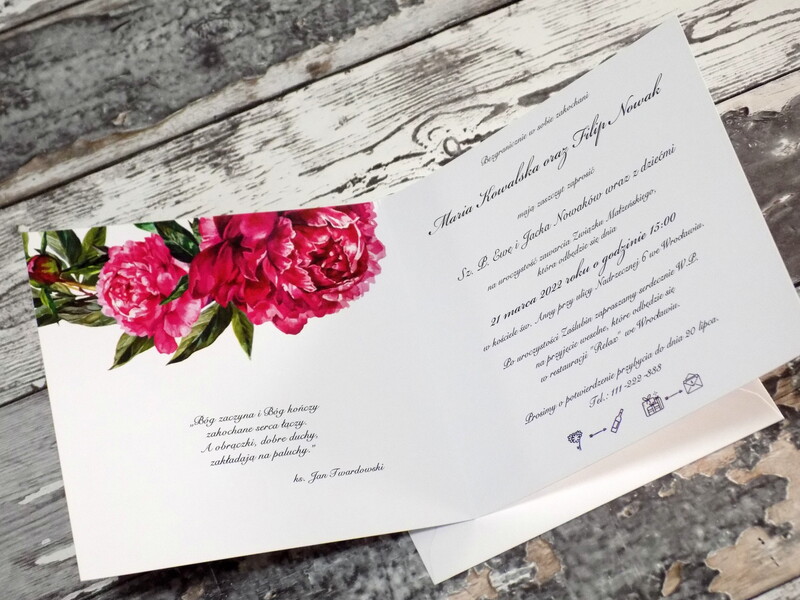 „Bóg zaczyna i Bóg kończy
zakochane serca łączy.
A obrączki, dobre duchy,
zakładają na paluchy.“
ks. Jan Twardowski
Bezgranicznie w sobie zakochani
Maria Kowalska oraz Filip Nowak
mają zaszczyt zaprosić
Sz. P. Ewę i Jacka Nowaków wraz z dziećmi
na uroczystość zawarcia Związku Małżeńskiego,
która odbędzie się dnia
21 marca 2022 roku o godzinie 15:00
w kościele św. Anny przy ulicy Nadrzecznej 6 we Wrocławiu.
Po uroczystości Zaślubin zapraszamy serdecznie W.P.
na przyjęcie weselne, które odbędzie się
w restauracji "Relax" we Wrocławiu.
Prosimy o potwierdzenie przybycia do dnia 20 lipca.
Tel.: 111-222-333